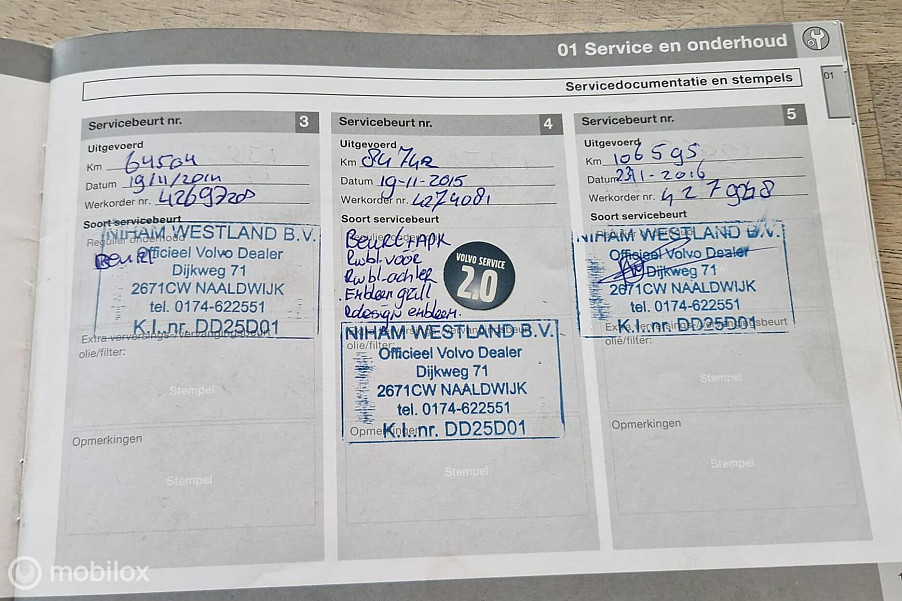 01 Service en onderhoud
Servicedocumentatie en stempels
01
Servicebeurt nr. 3
Uitgevoerd
Km 64504
Datum 19/11/2014
Werkorder nr. 4269720
Soort servicebeurt
Regulier onderhoud
Beurt
NIHAM WESTLAND B.V.
Officieel Volvo Dealer
Dijkweg 71
2671CW NAALDWIJK
tel. 0174-622551
K.I.nr. DD25D01
Extra verversings-/vervangingsbeurt
olie/filter:
Stempel
Opmerkingen
Stempel
Servicebeurt nr. 4
Uitgevoerd
Km 84742
Datum 19-11-2015
Werkorder nr. 4274081
Soort servicebeurt
Beurt + APK
Rwbl. voor
Rwbl-achter
Embleem grill
Rdesign embleem.
VOLVO SERVICE
2.0
NIHAM WESTLAND B.V.
olie/filter:
Officieel Volvo Dealer
Dijkweg 71
2671CW NAALDWIJK
tel. 0174-622551
Opmerkingen
K.I..nr. DD25D01
Stempel
Servicebeurt nr. 5
Uitgevoerd
Km 106595
Datum 23/1-2016
Werkorder nr.
Soort servicebeurt
NIHAM WESTLAND B.V.
Officieel Volvo Dealer
Dijkweg 71
2671CW NAALDWIJK
tel. 0174-622551
K.I..nr. DD25D01
Extra verversings-/vervangingsbeurt
olie/filter:
Stempel
Opmerkingen
Stempel
mobilox